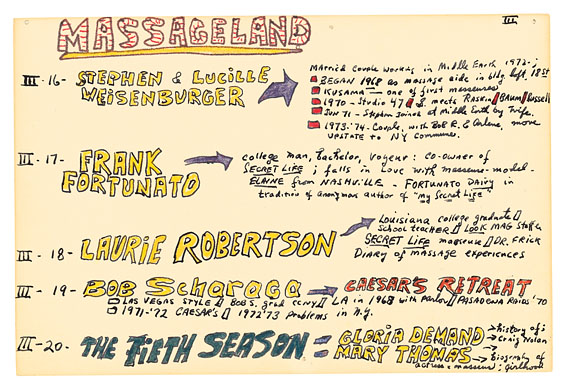 III
MASSAGELAND
III-16- STEPHEN & LUCILLE
WEISENBURGER
Married Couple working in Middle Earth 1972-;
BEGAN 1968 as massage aide in bldg loft, 18 St
KUSAMA — one of first masseuses
1970 - Studio 47 S. meets Raskin/BAUM/Russell
JUN 71 - Stephen joined at Middle Earth by wife.
1973-'74 - Couple, with Bob R. & Arlene, move
upstate to NY Commune.
III-17- FRANK
FORTUNATO
college man, bachelor, voyeur: co-owner of
SECRET LIFE; falls in love with masseuse-model-
ELAINE from NASHVILLE - FORTUNATO Dairy in
tradition of anonymous author of "my Secret Life"
III-18- LAURIE ROBERTSON
Louisiana college graduate
School teacher LOOK MAG staffer
SECRET LIFE masseuse DR. FRICK
Diary of massage experiences
III-19- BOB SCHARAGA
CAESAR'S RETREAT
LAS VEGAS STYLE BOB S. grad CCNY LA in 1968 with parlor PASADENA Raids '70
1971-'72 CAESAR'S 1972'73 Problems in N.Y.
III-20- THE FIFTH SEASON = GLORIA DEMAND
MARY THOMAS
history of
Craig Nolan
Biography of
actress & masseuse; Girlhood